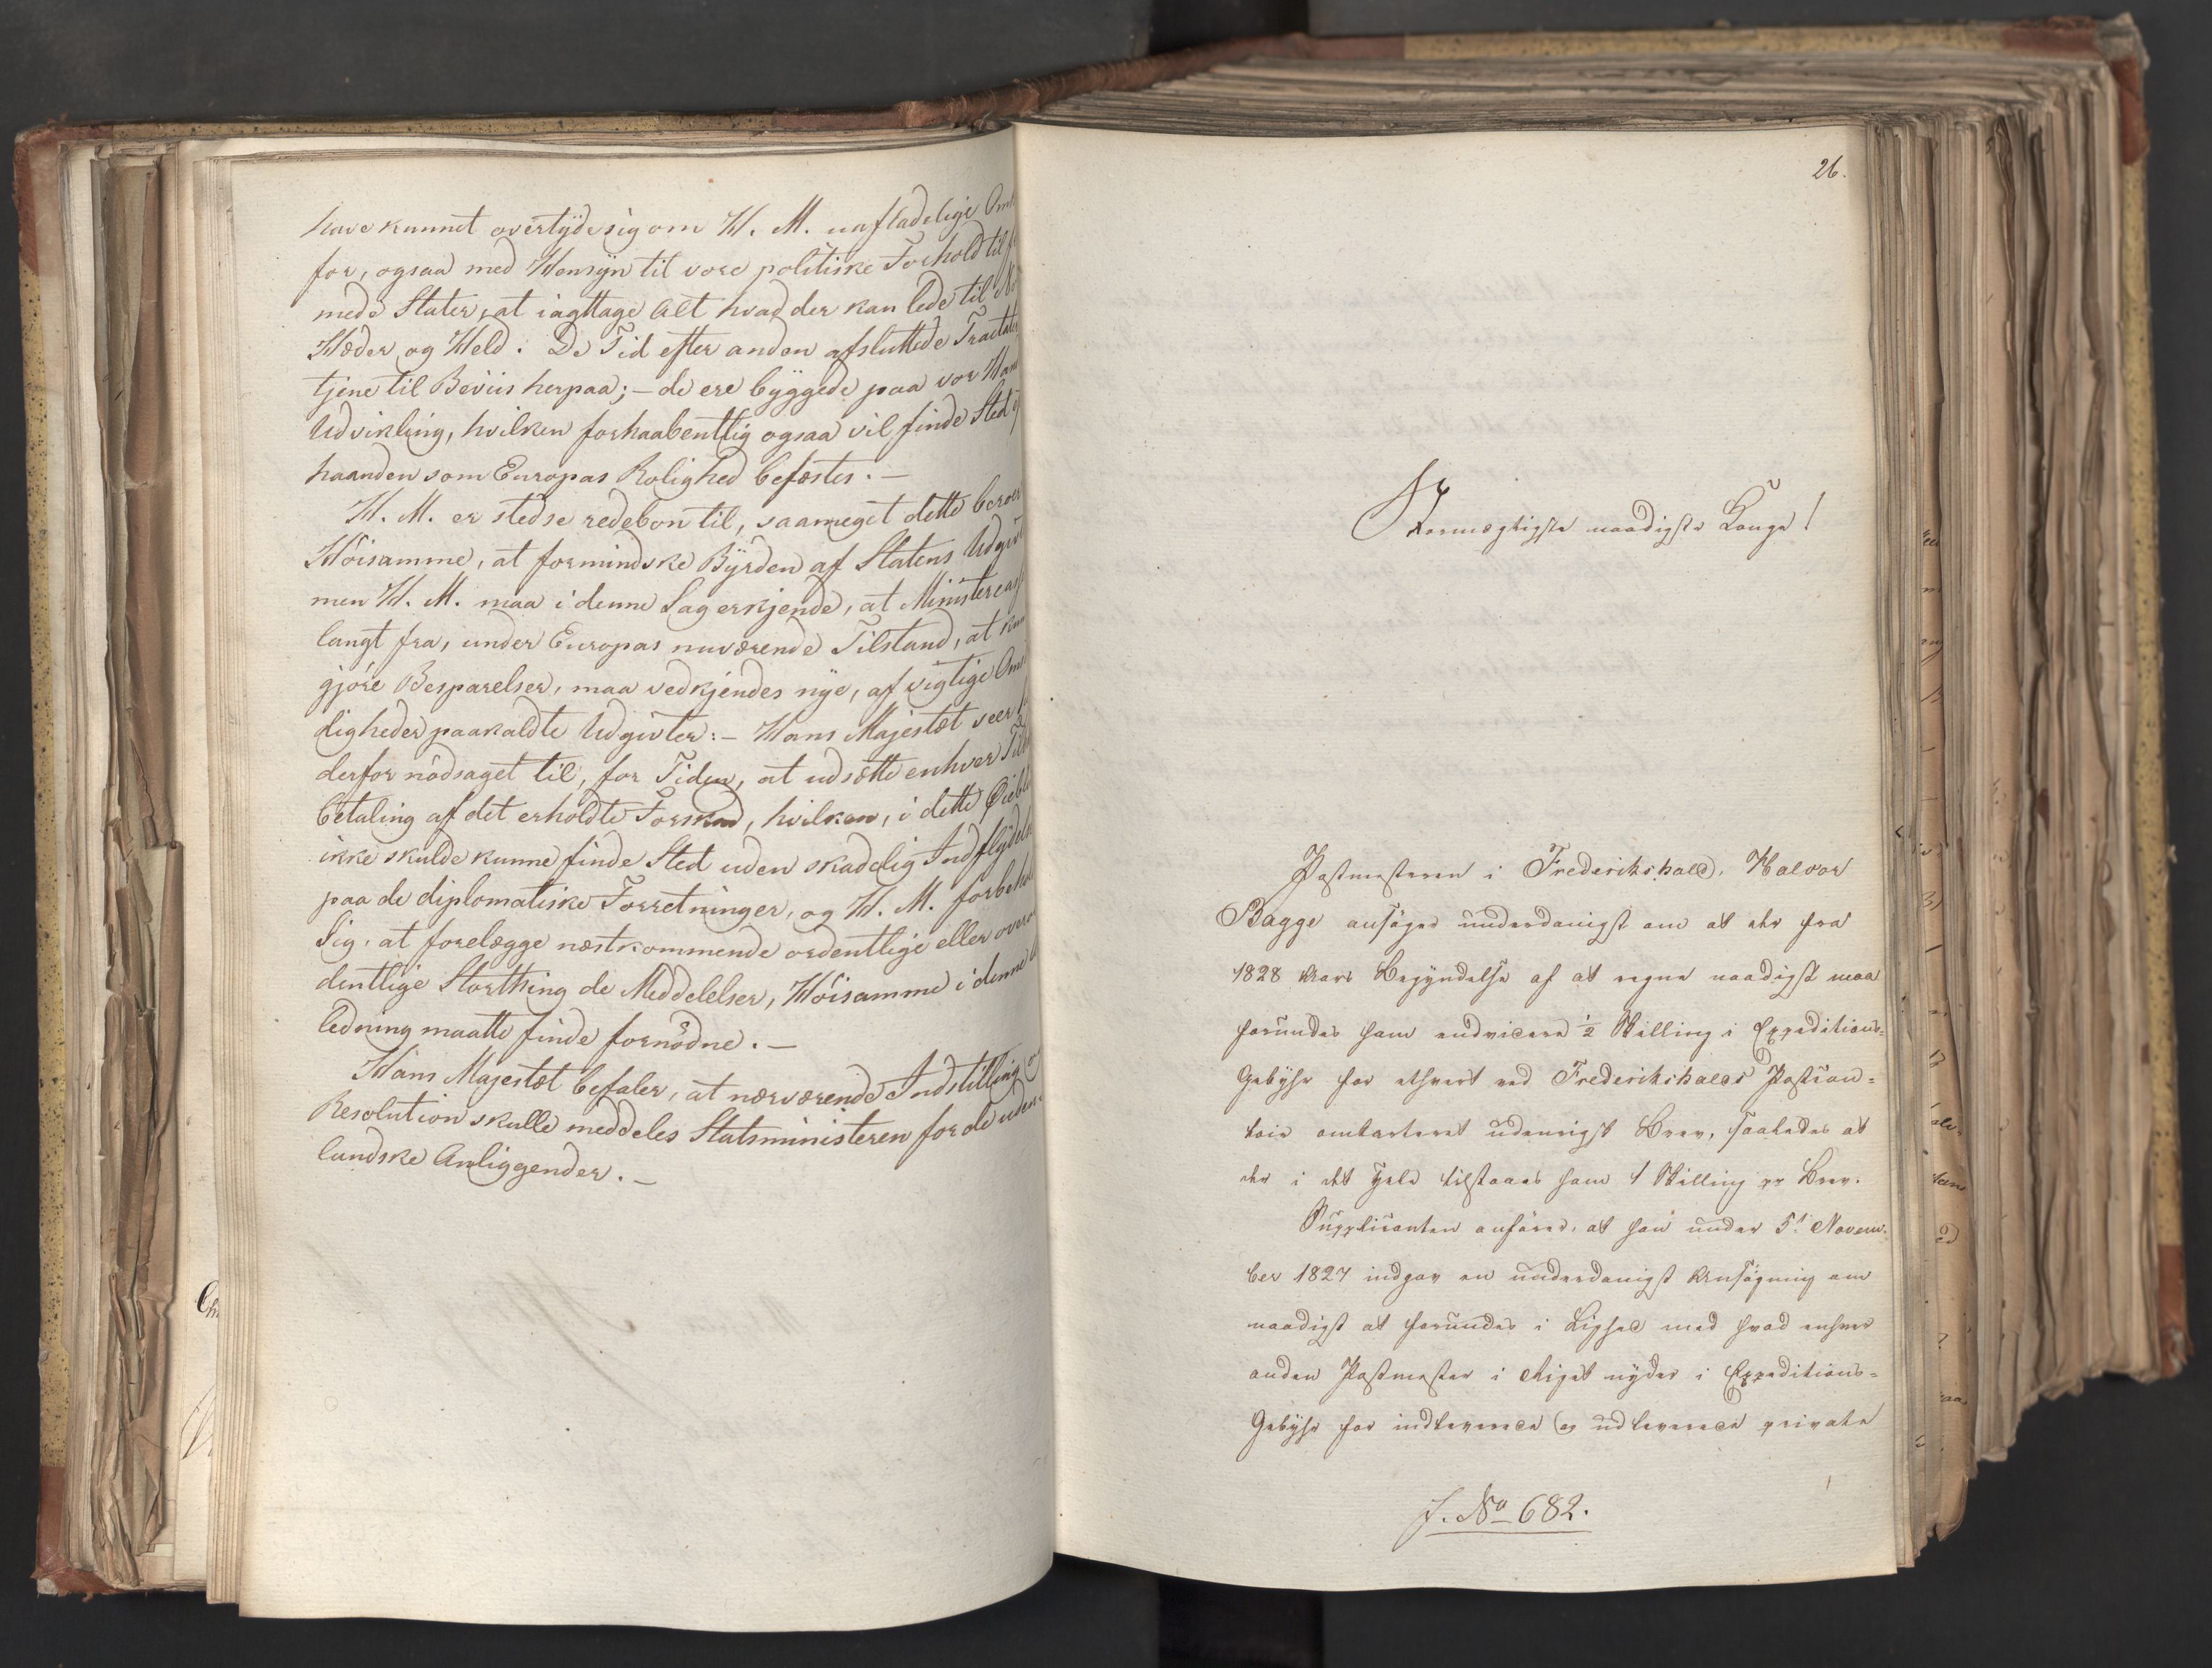 have kunnet overtyde sig om H. M. uafladelige
for, ogsaa med Hensyn til vore politiske Forhold til
mede Stater, at iagttage Alt hvad der kan lede til
Hæder og Held. De Tid efter anden afsluttede Tractater
tjene til Beviis herpaa; – de ere byggede paa vor
Udvikling, hvilken forhaabentlig ogsaa vil finde Sted
haanden som Europas Rolighed befæstes. –
H. M. er stedse redebon til, saameget dette beroer
Höisamme, at formindske Byrden af Statens
men H. M. maa i denne Sag erkjende, at
langt fra, under Europas nuværende Tilstand, at
gjöre Besparelser, maa vedkjendes nye, af vigtige
ligheder paakaldte Udgivter: – Hans Majestæt seer
derfor nödsaget til, for Tiden, at udsætte enhver
betaling af det erholdte Forskud, hvilken, i dette
ikke skulde kunne finde Sted uden skadelig Indflydelse
paa de diplomatiske Forretninger, og H. M.
Sig, at forelægge næstkommende ordentlige eller
dentlige Storthing de Meddelelser, Höisamme i denne
ledning maatte finde fornödne. –
Hans Majestæt befaler, at nærværende Indstilling og
Resolution skulle meddeles Statsministeren for de uden-
landske Anliggender. –
26.
Stormægtigste naadigste Konge!
Postmesteren i Frederikshald, Halvor
Bagge ansöger underdanigst om at der fra
1828 Aars Begyndelse af at regne naadigst maa
forundes ham endvidere ½ Skilling i Expeditions-
Gebyhr for ethvert ved Frederikshalds Postcon-
toir omkarteret udenrigst Brev, saaledes at
der i det Hele tilstaaes ham 1 Skilling pr Brev.
Supplicanten anförer, at han under 5t Novem-
ber 1827 indgav en underdanigst Ansögning om
naadigst at forundes i Lighed med hvad enhver
anden Postmester i Riget nyder i Expeditions-
Gebyhr for indleverede og udleverede private
J. No 682.